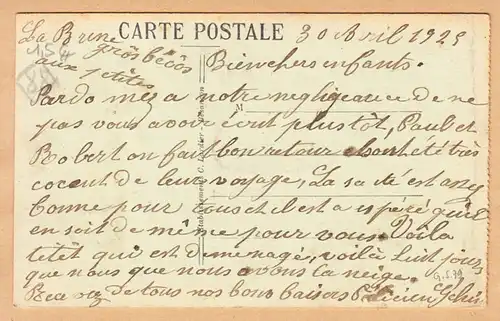 La Brune CARTE POSTALE 30 Avril 1925
gròs bécòs
aux ptètes
Bien chers enfants.
Pardo mez a notre negligeance de ne
pas vous avoir écrit plus tôt, Paul et
Robert on fait bon retour et sont été très
cocent de leur voyage, La sa té est assez
bonne pour tous et il est a espéré quil
en soit de même pour vous. Voila
tètèt qui est demenagé, voila huit jours
que nous que nous avons la neige.
Recevez de tous nos bons baisers
G.S.79